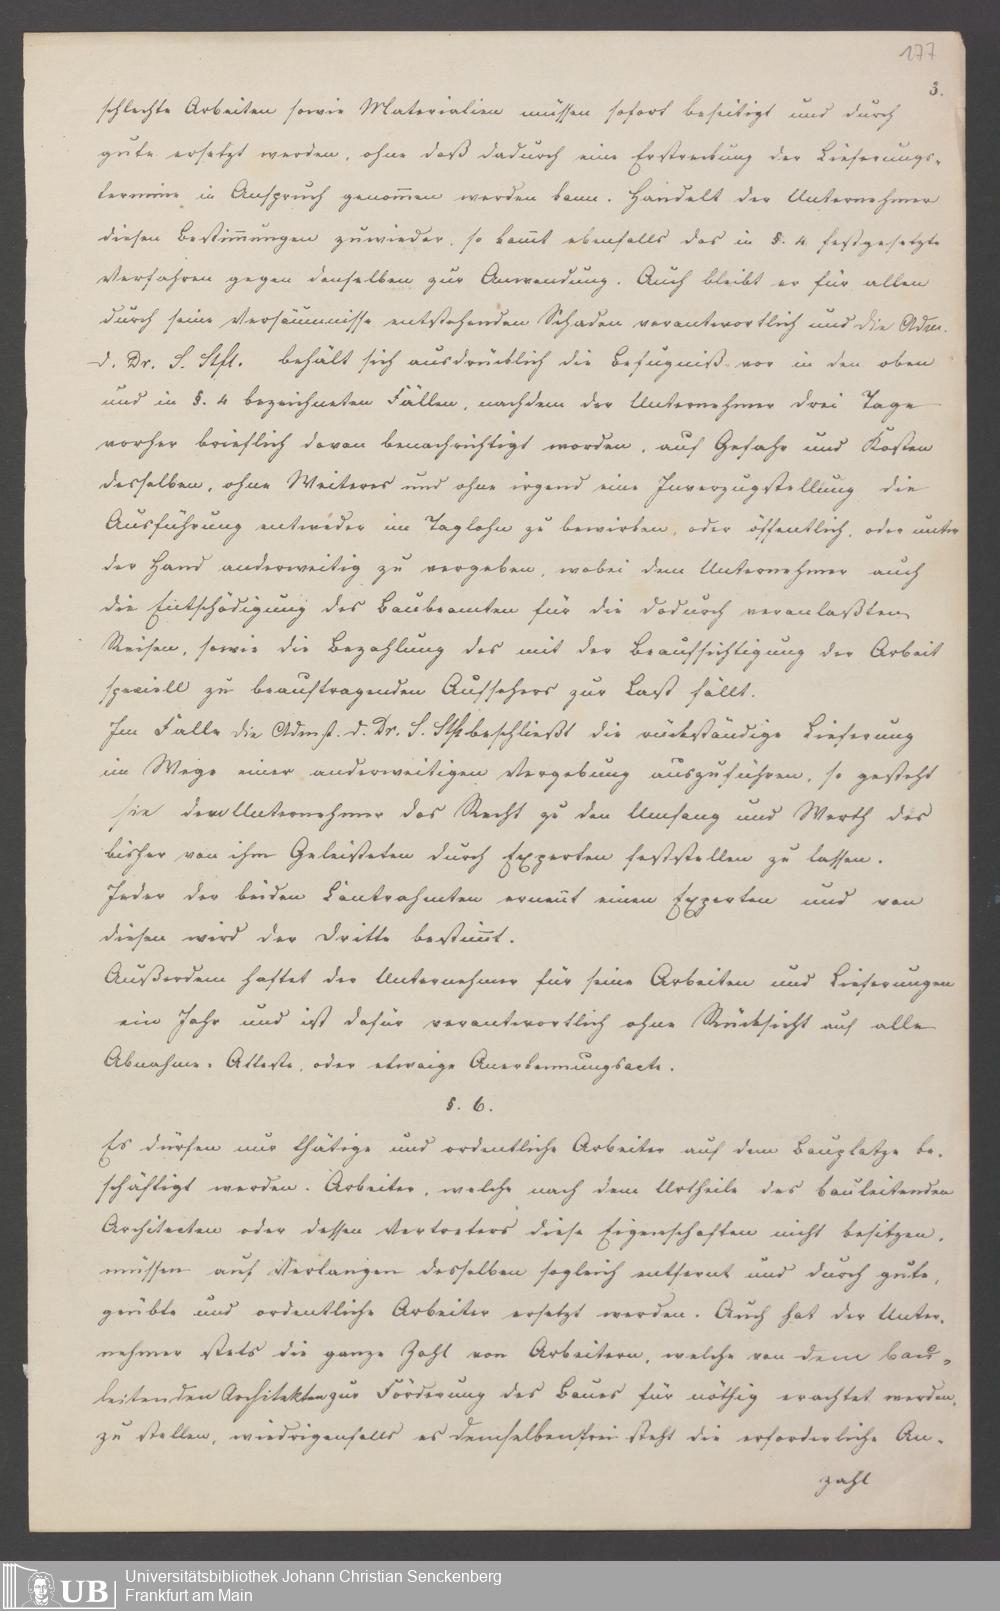 177
3.
schlechte Arbeiten sowie Materialien müssen sofort beseitigt und durch
gute ersetzt werden, ohne daß dadurch eine Erstreckung der Lieferungs-
termine in Anspruch genom̅en werden kann. Handelt der Unternehmer
diesen Bestim̅ungen zuwieder, so kom̅t ebenfalls das in §. 4 festgesetzte
Verfahren gegen denselben zur Anwendung. Auch bleibt er für allen
durch seine Versäumnisse entstehenden Schaden verantwortlich und die Adm.
d. Dr. S. Stft. behält sich ausdrücklich die Befugniß vor in den oben
und in §. 4 bezeichneten Fällen, nachdem der Unternehmer drei Tage
vorher brieflich davon benachrichtigt worden, auf Gefahr und Kosten
desselben, ohne Weiteres und ohne irgend eine Inverzugstellung die
Ausführung entweder im Taglohn zu bewirken, oder öffentlich, oder unter
der Hand anderweitig zu vergeben, wobei dem Unternehmer auch
die Entschädigung des Baubeamten für die dadurch veranlaßten
Reisen, sowie die Bezahlung des mit der Beaufsichtigung der Arbeit
speciell zu beauftragenden Aufsehers zur Last fällt.
Im Falle die Admst. d. Dr. S. Stft beschließt die rückständige Lieferung
im Wege einer anderweitigen Vergebung auszuführen, so gesteht
sie dem Unternehmer das Recht zu den Umfang und Werth des
bisher von ihm Geleisteten durch Experten feststellen zu lassen.
Jeder der beiden Contrahenten ernen̅t einen Experten und von
diesen wird der Dritte bestim̅t.
Außerdem haftet der Unternehmer für seine Arbeiten und Lieferungen
ein Jahr und ist dafür verantwortlich ohne Rücksicht auf alle
Abnahme-Atteste, oder etwaige Anerkennungsacte.
§. 6.
Es dürfen nur thätige und ordentliche Arbeiter auf dem Bauplatze be-
schäftigt werden. Arbeiter, welche nach dem Urtheile des bauleitenden
Architecten oder dessen Vertreters diese Eigenschaften nicht besitzen,
müssen auf Verlangen desselben sogleich entfernt und durch gute,
geübte und ordentliche Arbeiter ersetzt werden. Auch hat der Unter-
nehmer stets die ganze Zahl von Arbeitern, welche von dem bau-
leitenden Architekten zur Förderung des Baues für nöthig erachtet werden,
zu stellen, wiedrigenfalls es demselben frei steht die erforderliche An-
zahl
UB Universitätsbibliothek Johann Christian Senckenberg
Frankfurt am Main